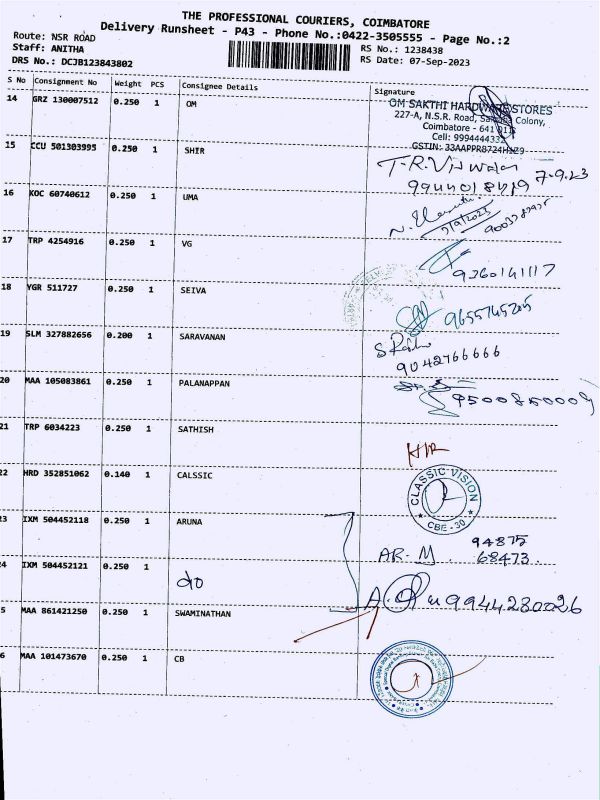 THE PROFESSIONAL COURIERS, COIMBATORE
Delivery Runsheet - P43 - Phone No.:0422-3505555 - Page No.:2
Route: NSR ROAD
Staff: ANITHA
RS No.: 1238438
DRS No.: DCJB123843802
RS Date: 07-Sep-2023
S No Consignment No Weight PCS Consignee Details Signature
14 GRZ 130007512 0.250 1 OM
OM SAKTHI HARDWARE STORES
227-A, N.S.R. Road, Colony,
Coimbatore - 641
Cell: 9994444332
GSTIN: 33AAPPR8724H1Z9
15 CCU 501303995 0.250 1 SHIR
7-9-23
16 KOC 60740612 0.250 1 UMA
7/9/2023
17 TRP 4254916 0.250 1 VG
9360141117
18 YGR 511727 0.250 1 SEIVA
9655745205
19 SLM 327882656 0.200 1 SARAVANAN
9042766666
20 MAA 105083861 0.250 1 PALANAPPAN
21 TRP 6034223 0.250 1 SATHISH
22 HRD 352851062 0.140 1 CALSSIC
CLASSIC VISION
CBE - 30
23 IXM 504452118 0.250 1 ARUNA
AR-M. 94875
68473
24 IXM 504452121 0.250 1
do
25 MAA 861421250 0.250 1 SWAMINATHAN
9944230026
26 MAA 101473670 0.250 1 CB